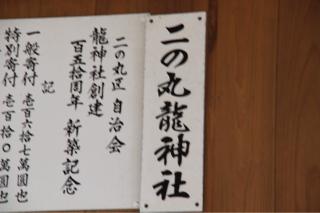 二の丸龍神社
二の丸区 自治会
龍神社創建
百五拾周年 新築記念
記
一般寄付 壱百六拾七萬圓也
特別寄付 壱百拾〇萬圓也